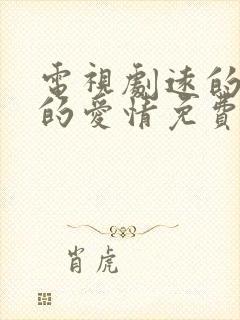 電視劇速的
的愛情免費
肖虎